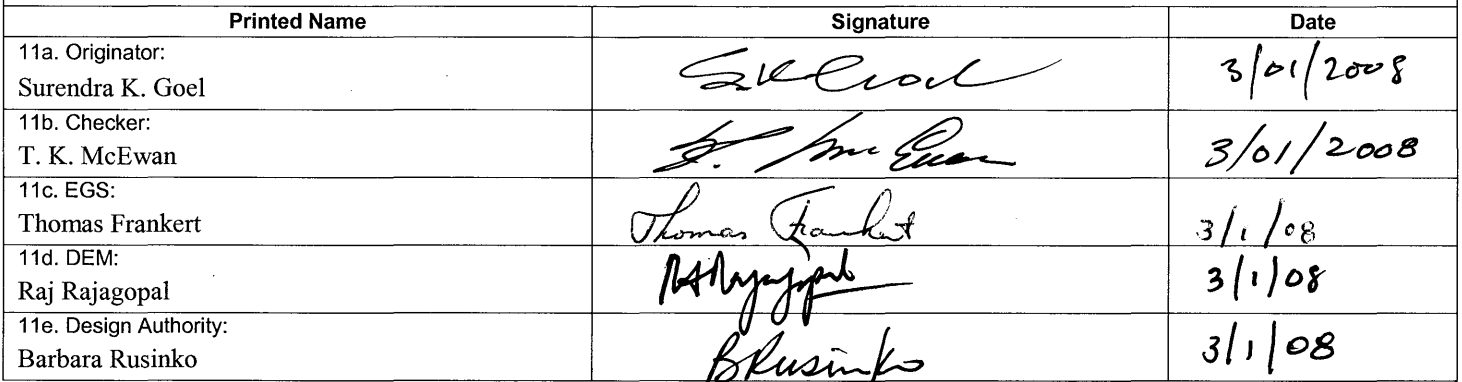 Printed Name Signature Date
11a. Originator:
Surendra K. Goel SK Goel 3/01/2008
11b. Checker:
T. K. McEwan K. McEwan 3/01/2008
11c. EGS:
Thomas Frankert Thomas Frankert 3/1/08
11d. DEM:
Raj Rajagopal 3/1/08
11e. Design Authority:
Barbara Rusinko BRusinko 3/1/08